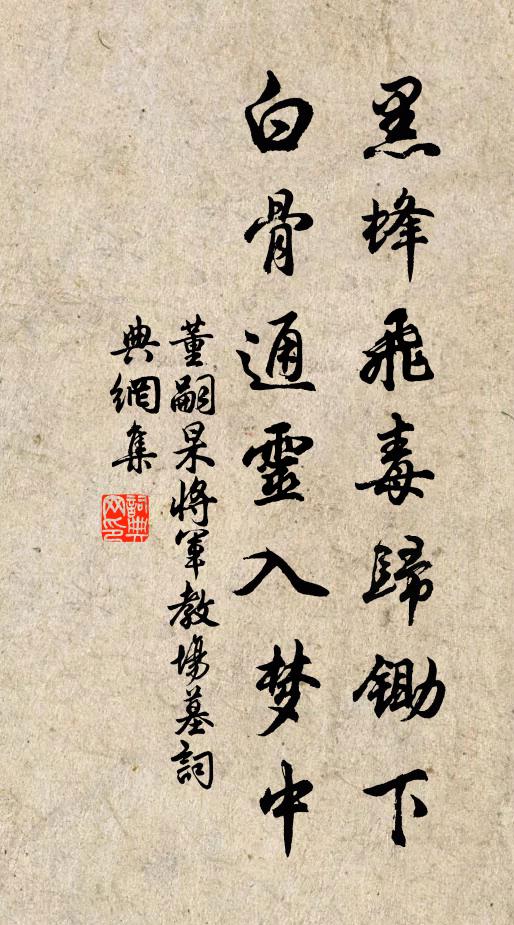 黑蜂飛毒歸鋤下
白骨通靈入梦中
董嗣杲將軍教場墓詞
典網集
詞典网印